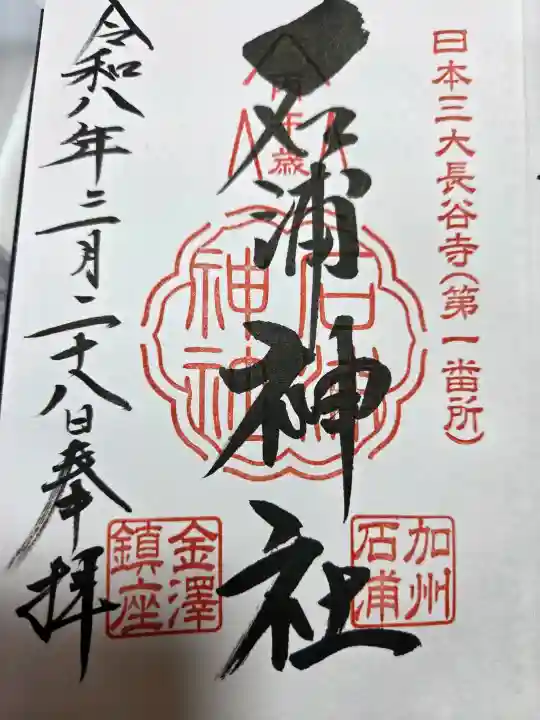 日本三大長谷寺(第一番所)
石浦神社
石浦神社
加州
石浦
金澤
鎮座
令和八年三月二十八日奉拝